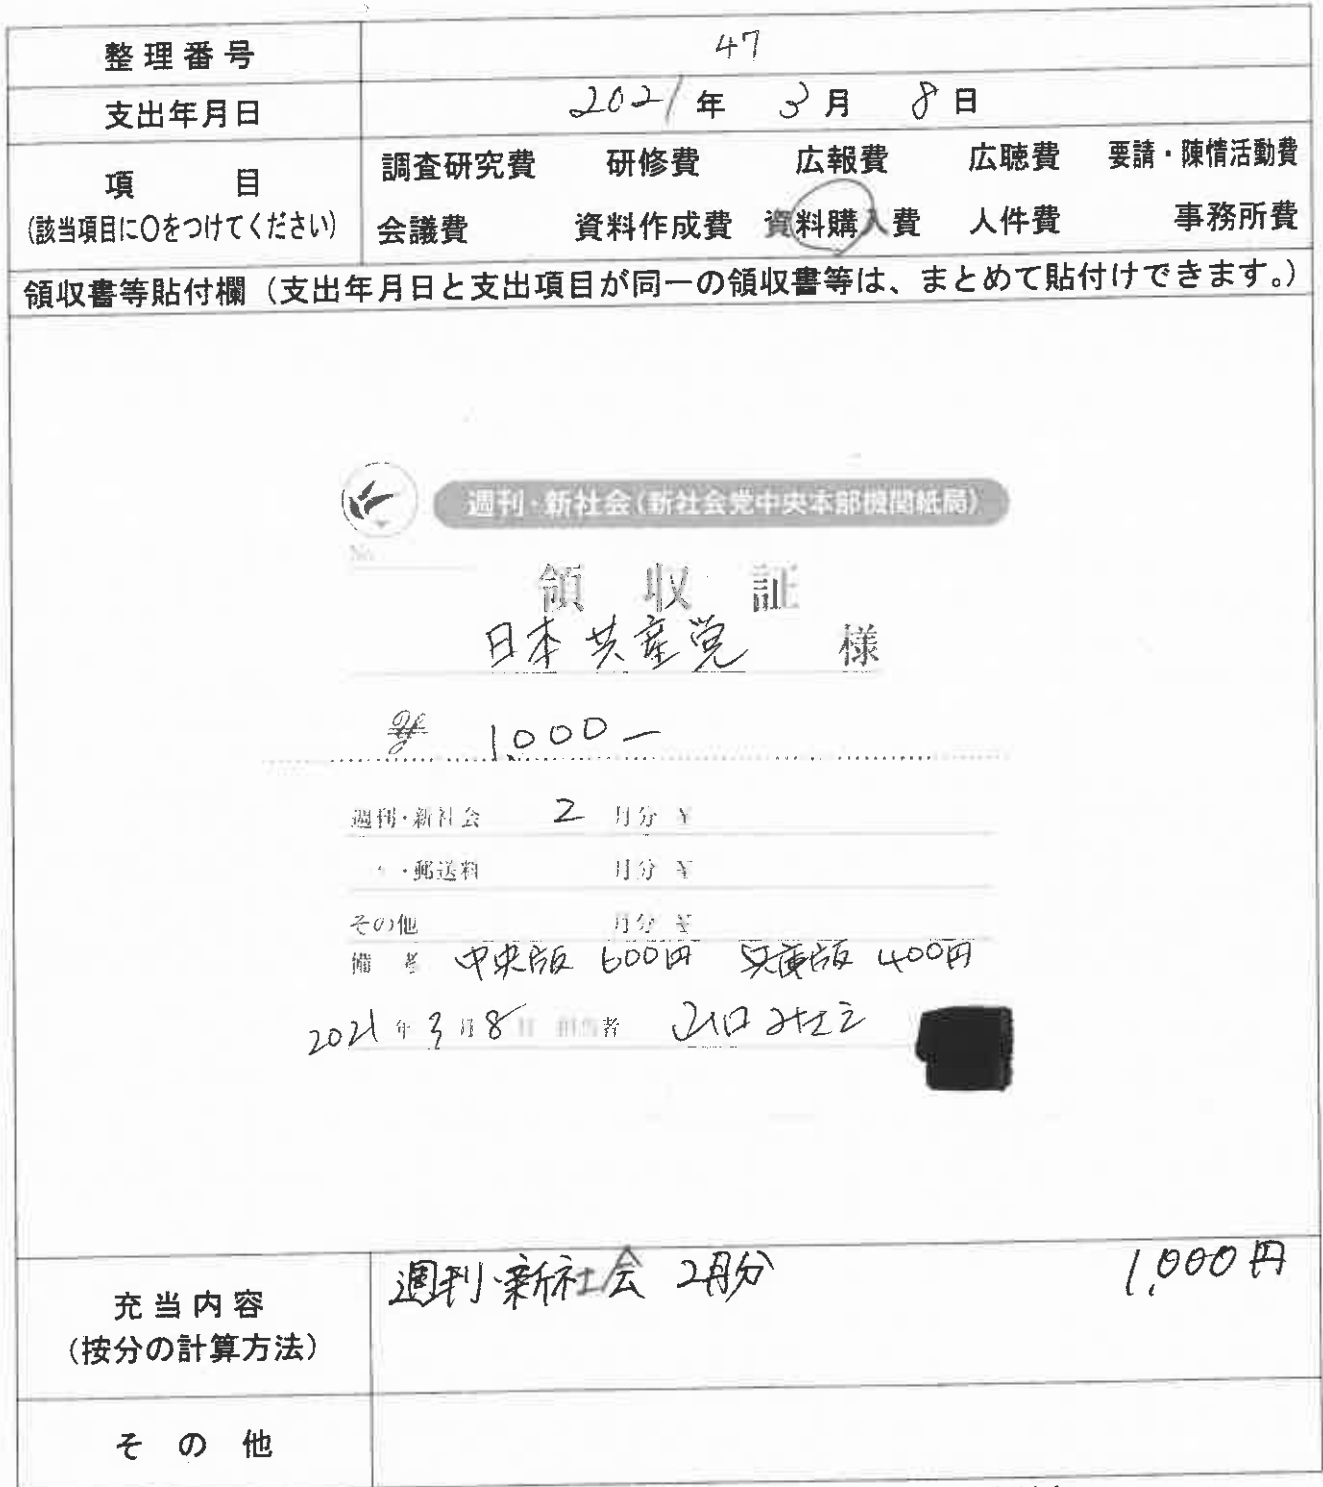 整理番号 47
支出年月日 2021年 3月 8日
項 目 調査研究費 研修費 広報費 広聴費 要請・陳情活動費
(該当項目に○をつけてください) 会議費 資料作成費 資料購入費 人件費 事務所費
領収書等貼付欄(支出年月日と支出項目が同一の領収書等は、まとめて貼付けできます。)
週刊・新社会(新社会党中央本部機関紙局)
No.
領 収 証
日本共産党 様
¥ 1,000 −
週刊・新社会 2 月分 ¥
〃 ・郵送料 月分 ¥
その他 月分 ¥
備 考 中央版 600円 兵庫版 400円
2021年 3月 8日 担当者 山口
充当内容 週刊・新社会 2月分 1,000円
(按分の計算方法)
そ の 他